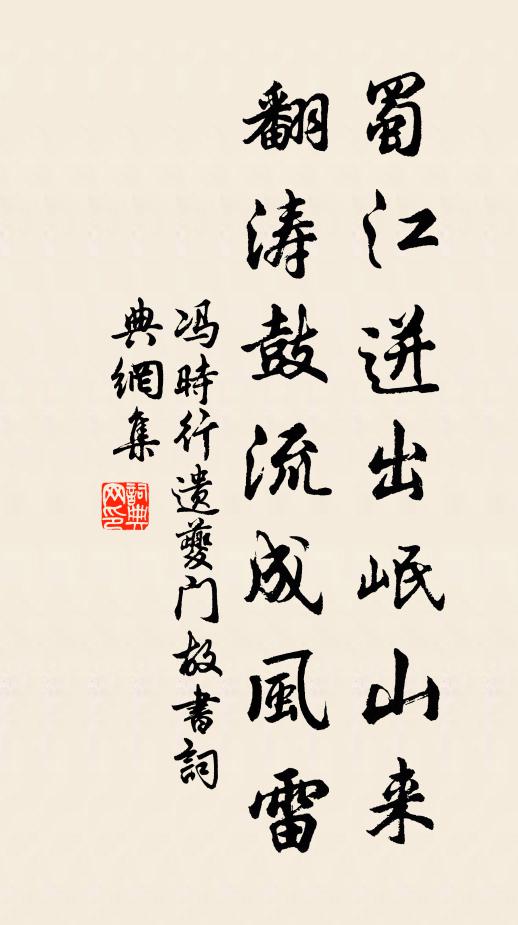 蜀江迸出岷山来
翻涛鼓流成風雷
冯時行遗夔门故書詞
典網集
詞典网印